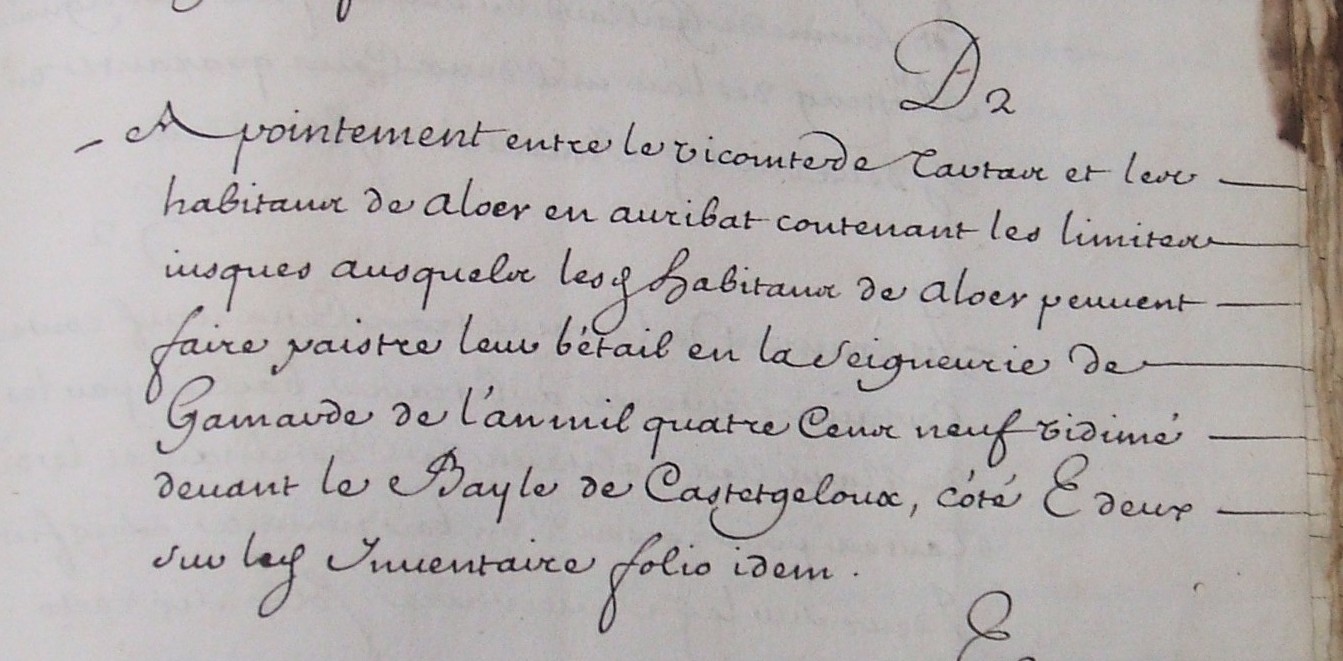 D 2
- Apointement entre le vicomte de Tartas et les
habitans de aloes en auribat contenant les limites
iusques ausquels lesd habitans de aloes peuuent
faire paistre leur bétail en la seigneurie de
Gamarde de l'an mil quatre Cens neuf vidimé
deuant le Bayle de Castetgeloux, cóté E deux
sur led Inuentaire folio idem.
E